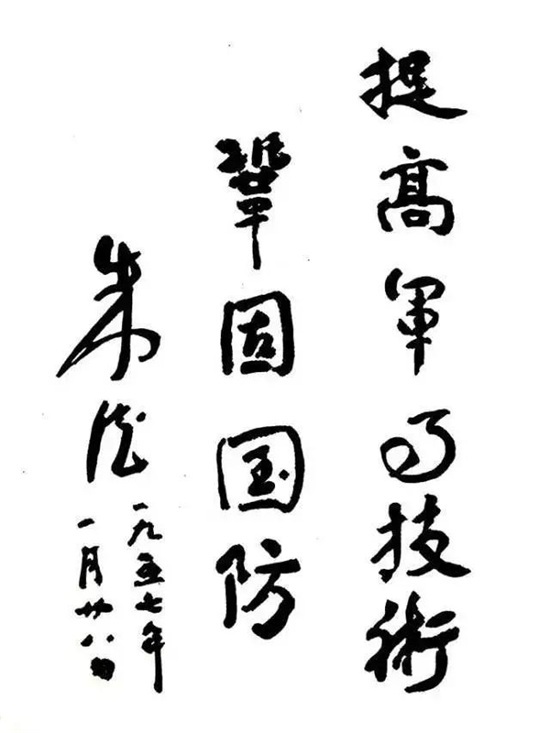 提高軍事技術
鞏固国防
朱德
一九五七年
一月廿八日